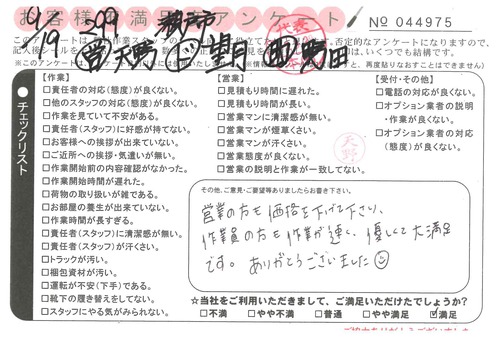 お客様満足アンケート
No 044975
4/19 599 瀬戸市
㊢天野
このアンケートは
作業スタッフの
否定的なアンケートになりますので、
記入後シールを
いくつでも結構です。
※このアンケートは
再度貼りなおすことはできません)
チェックリスト
【作業】
□責任者の対応(態度)が良くない。
□他のスタッフの対応(態度)が良くない。
□作業を見ていて不安がある。
□責任者(スタッフ)に好感が持てない。
□お客様への挨拶が出来ていない。
□ご近所への挨拶・気遣いが無い。
□作業開始前の内容確認がなかった。
□作業開始時間が遅れた。
□荷物の取り扱いが雑である。
□お部屋の養生が出来ていない。
□作業時間が長すぎる。
□責任者(スタッフ)に清潔感が無い。
□責任者(スタッフ)が汗くさい。
□トラックが汚い。
□梱包資材が汚い。
□運転が不安(下手)である。
□靴下の履き替えをしてない。
□スタッフにやる気がみられない。
【営業】
□見積もり時間に遅れた。
□見積もり時間が長い。
□営業マンに清潔感が無い。
□営業マンが煙草くさい。
□営業マンが汗くさい。
□営業態度が良くない。
□営業の説明と作業が一致してない。
【受付・その他】
□電話の対応が良くない。
□オプション業者の説明
・作業が良くない。
□オプション業者の対応
(態度)が良くない。
天野
その他、ご意見・ご要望等ありましたらお書き下さい。
営業の方も価格を下げて下さい、
作業員の方も作業が速く、優しくて大満足
です。ありがとうございました
☆当社をご利用いただきまして、ご満足いただけたでしょうか？
□不満 □やや不満 □普通 □やや満足 ☑満足